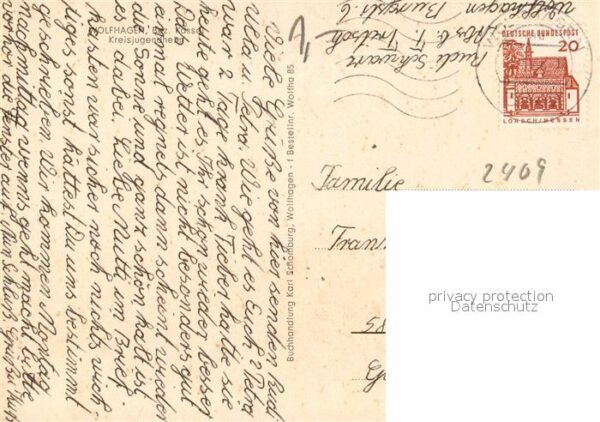 WOLFHAGEN, Bez. Kassel
Kreisjugendheim
Viele Grüße von hier senden Rudi
Petra. Wie geht es Euch? Petra
war 2 Tage krank, Fieber hatte sie
heute geht es Ihr schon wieder besser
Das Wetter ist nicht besonders gut
einmal regnets, dann scheint wieder
die Sonne und ganz schön kalt ist
es dabei. Liebe Mutti, im Brief
kasten war sicher noch nichts wich
tiges, sonst hättest Du uns bestimmt
geschrieben. Wir kommen Montag
nachmittag, wenns geht mach bitte
vorher die Fenster auf. Nun Schluß Grüße
Buchhandlung Karl Schomburg, Wolfhagen - f Bestellnr. Wolfha 85
Rudi Schwarz
Burgstr. 6
Wolfhagen
DEUTSCHE BUNDESPOST
20
LORSCH/HESSEN
2409
Familie
privacy protection
Datenschutz